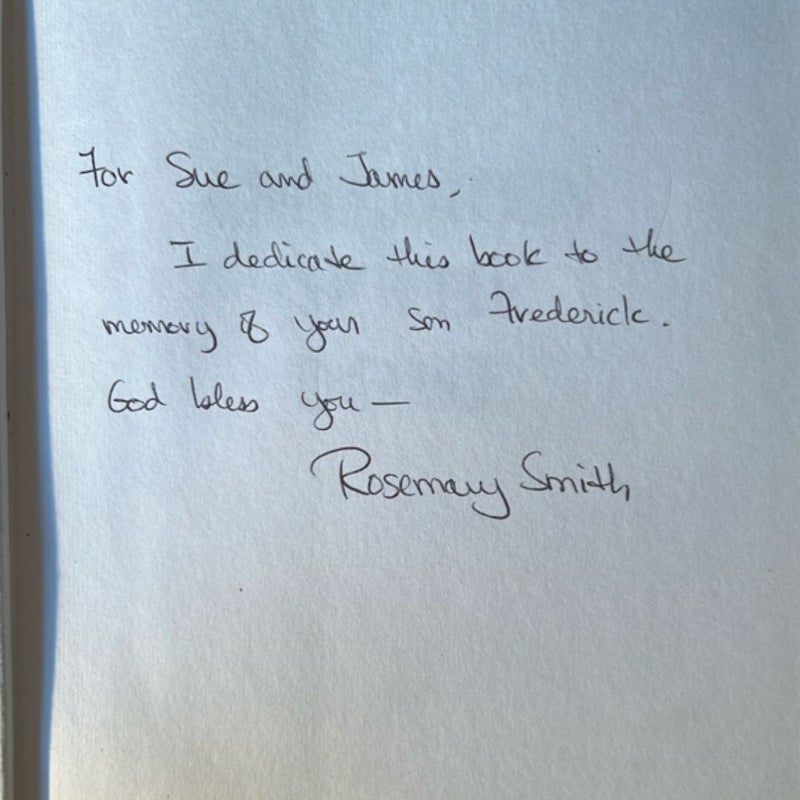 For Sue and James,
I dedicate this book to the
memory of your son Frederick.
God bless you —
Rosemary Smith